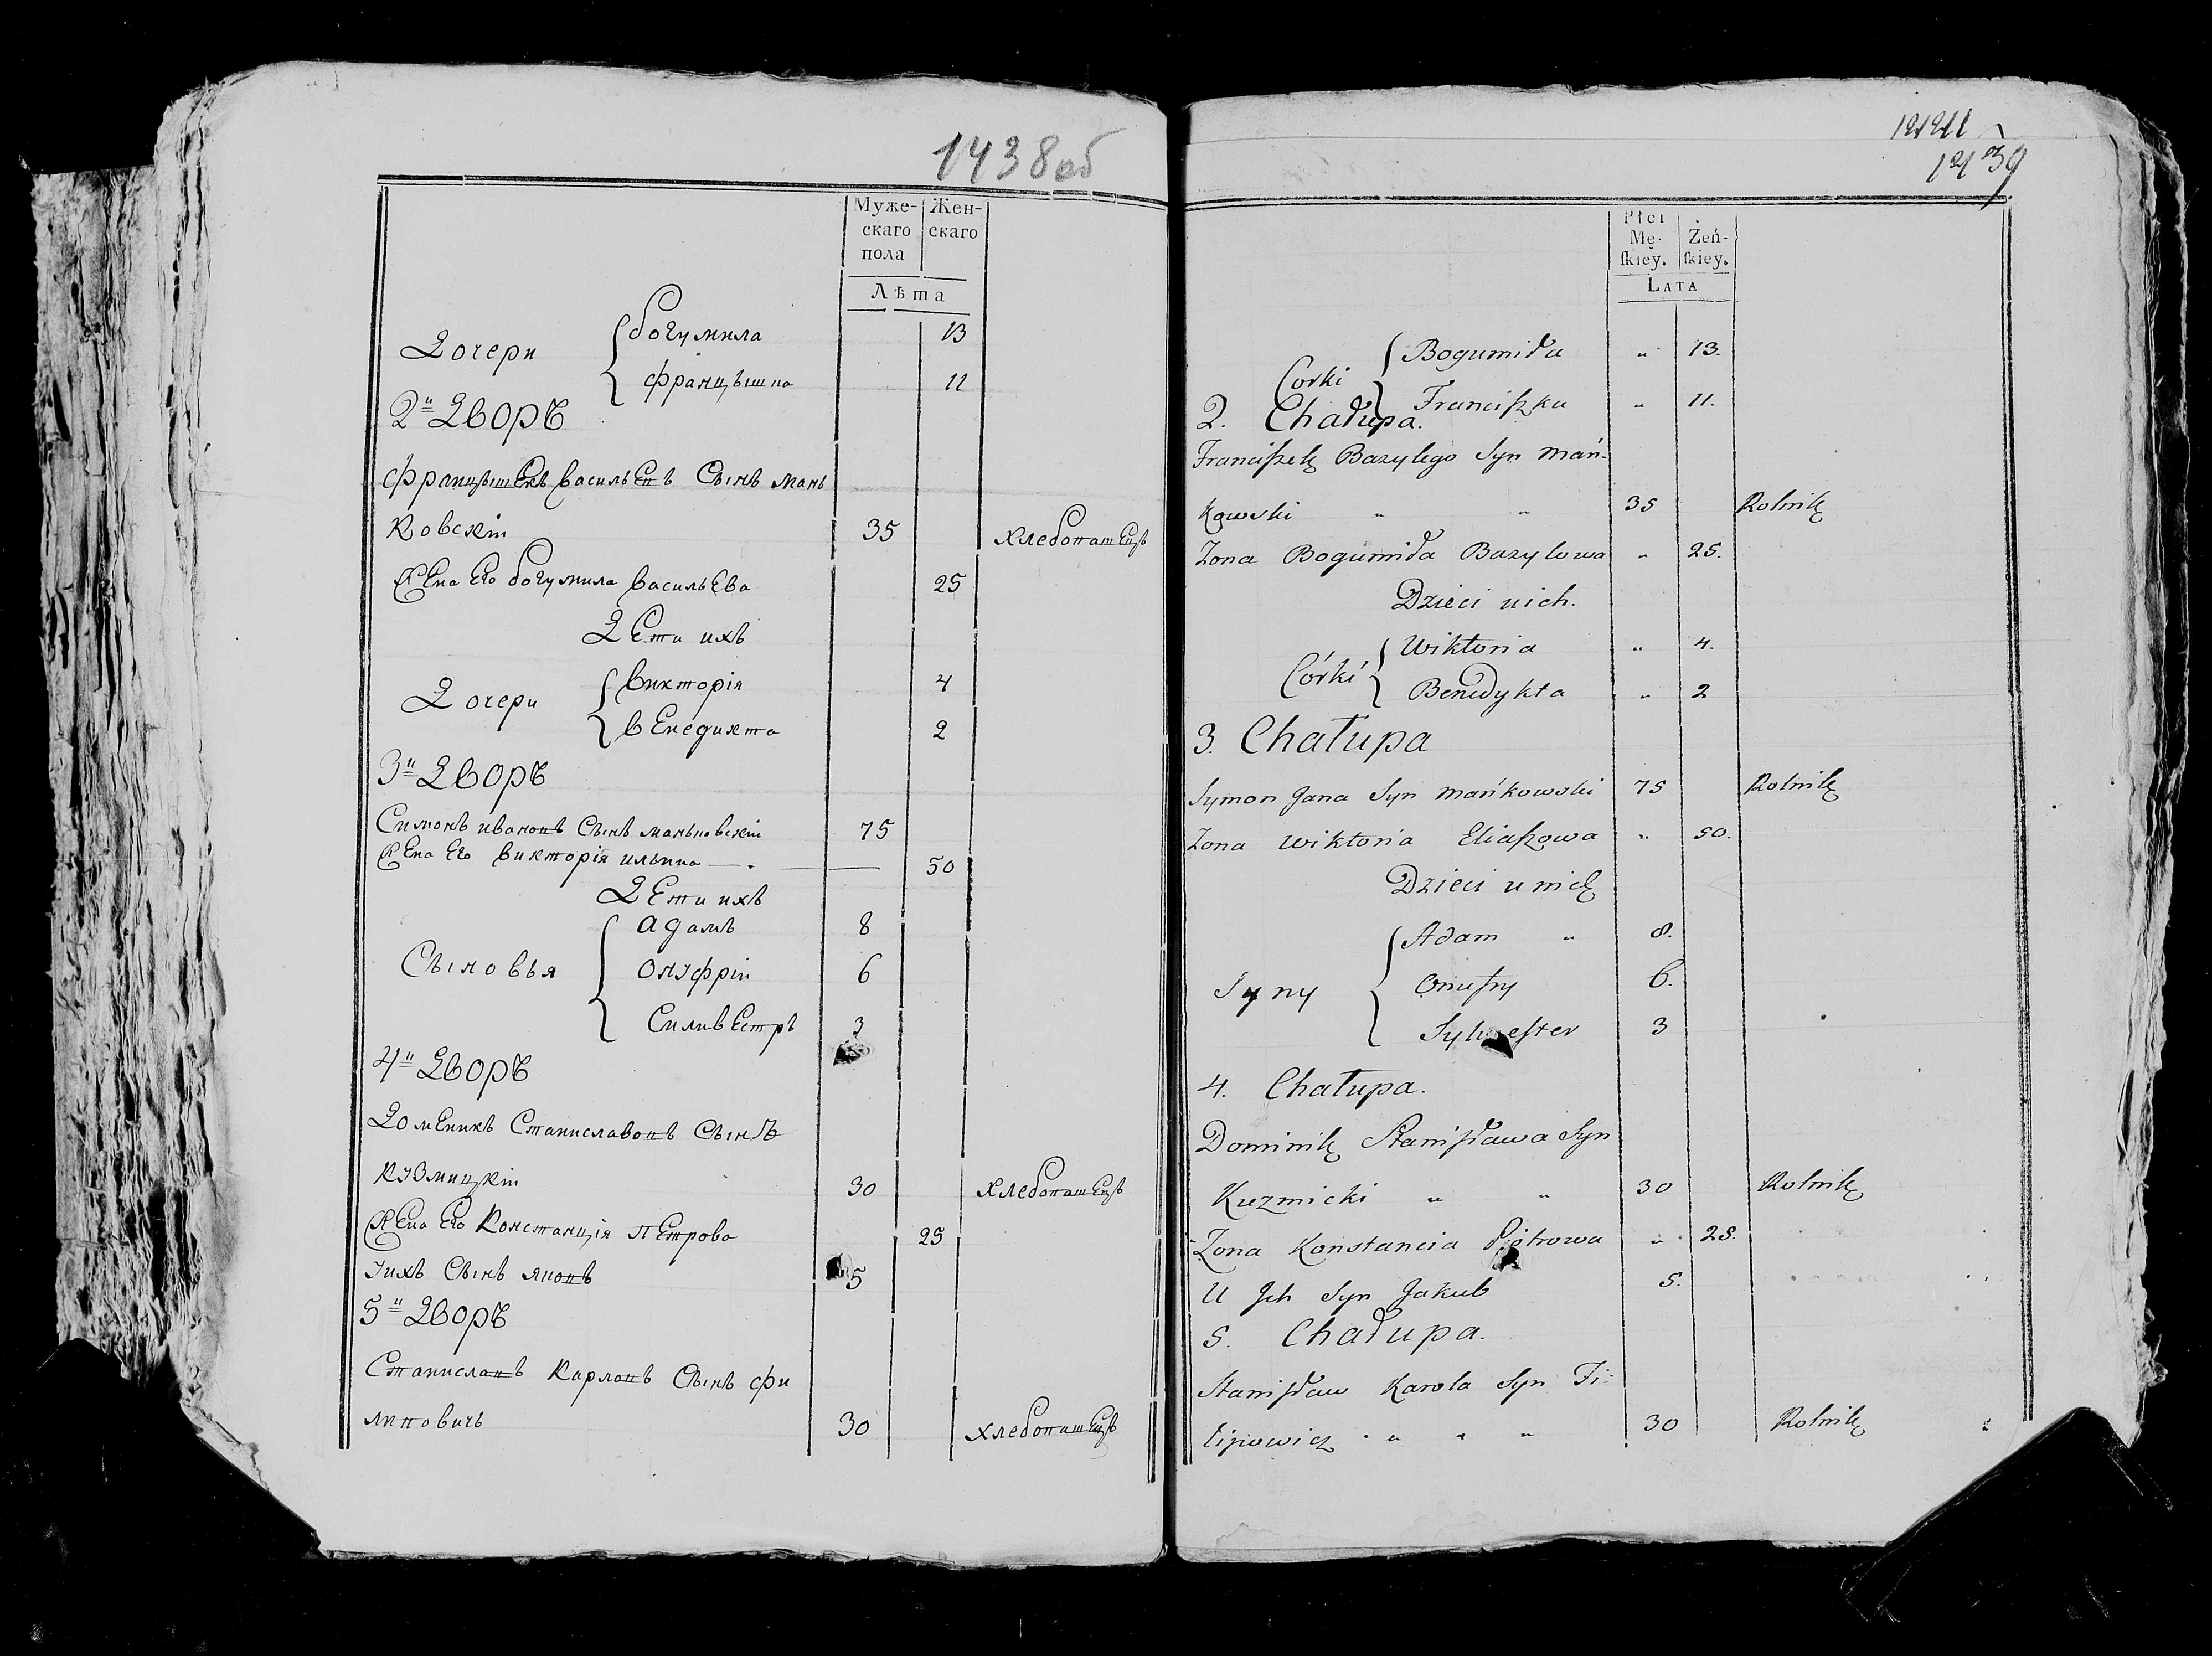 1438об
Муже-
скаго
пола
Жен-
скаго
Лѣта
Дочери
богумила 13
францѣшка 11
2й Дворъ
францѣшекъ васильевъ Сынъ мань
ковскій 35 хлебопашецъ
Жена Его богумила васильева 25
Дети ихъ
Дочери
викторія 4
венедикта 2
3й Дворъ
Симонъ ивановъ Сынъ маньковскій 75
Жена Его викторія ильина 50
Дети ихъ
Сыновья
адамъ 8
онуфрій 6
Силивестръ 3
4й Дворъ
Доменикъ Станиславовъ Сынъ
кузмицкій 30 хлебопашецъ
Жена Его Констанція петрова 25
Уихъ Сынъ яковъ 5
5й Дворъ
Станиславъ Карловъ Сынъ фи
липовичъ 30 хлебопашецъ
1439
Płci
Mę-
ſkiey.
Żeń-
ſkiey.
LATA
Corki
Bogumiła " 13.
Franciſzka " 11.
2. Chałupa.
Franciſzek Bazylego Syn Mań-
kowski " " 35 Rolnik
Zona Bogumiła Bazylowa " 25.
Dzieci uich.
Córki
Wiktoria " 4.
Benedykta " 2
3. Chałupa
Symon Jana Syn Mańkowski 75 Rolnik
Zona Wiktoria Eliaſzowa " 50.
Dzieci u nich
Syny
Adam " 8.
Onufry 6.
Sylweſter 3
4. Chałupa.
Dominik Staniſława Syn
Kuzmicki " " 30 Rolnik
Zona Konstancia Piotrowa " 25.
U Jch Syn Jakub 5.
5. Chałupa.
Staniſław Karola Syn Fi:
lipowicz " " " 30 Rolnik